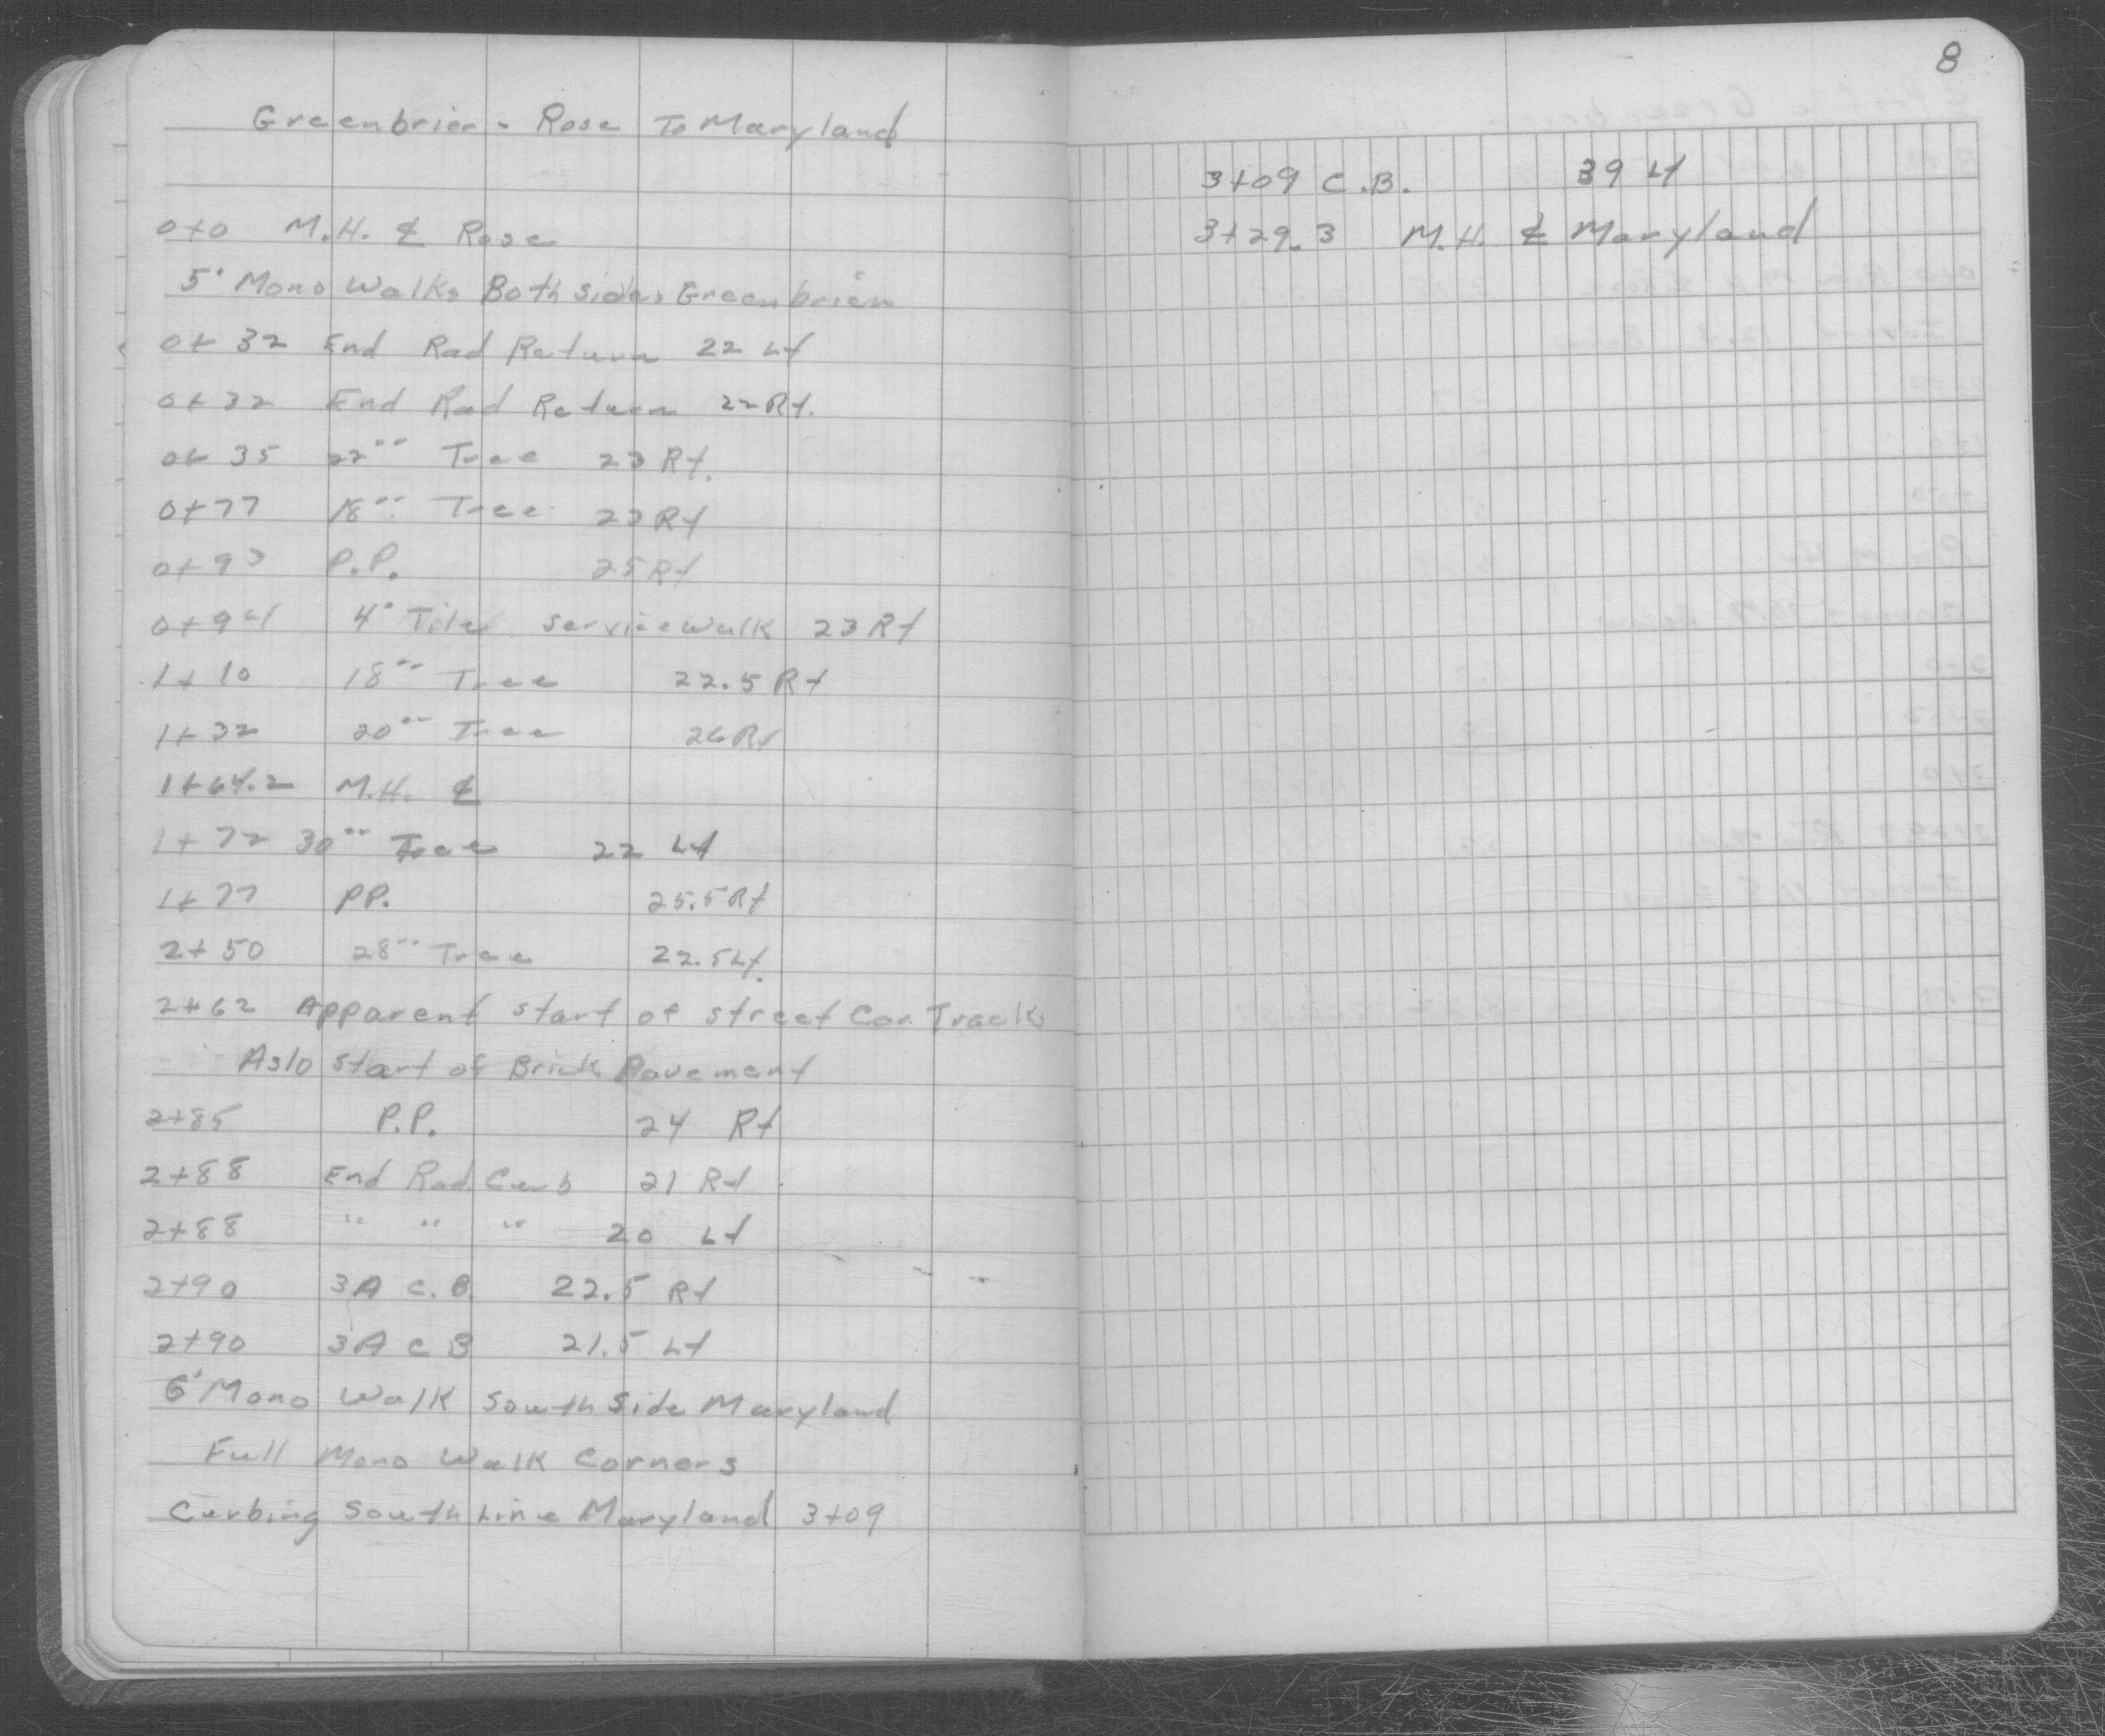 Greenbrier - Rose To Maryland
0+0 M.H. ℄ Rose
5' Mono Walks Both Sides Greenbrier
0+32 End Rad Return 22 Lt
0+32 End Rad Return 22 Rt.
0+35 22" Tree 23 Rt.
0+77 18" Tree 23 Rt
0+93 P.P. 25 Rt
0+94 4' Tile Service Walk 23 Rt
1+10 18" Tree 22.5 Rt
1+32 20" Tree 26 Rt
1+64.2 M.H. ℄
1+72 30" Tree 22 Lt
1+77 PP. 25.5 Rt
2+50 28" Tree 22.5 Lt.
2+62 Apparent start of street Car Tracks
Aslo start of Brick Pavement
2+85 P.P. 24 Rt
2+88 End Rad. Curb 21 Rt
2+88 " " " 20 Lt
2+90 3A C.B. 22.5 Rt
2+90 3A C B 21.5 Lt
6' Mono Walk South Side Maryland
Full Mono Walk Corners
Curbing South Line Maryland 3+09
8
3+09 C.B. 39 Lt
3+29.3 M.H. ℄ Maryland